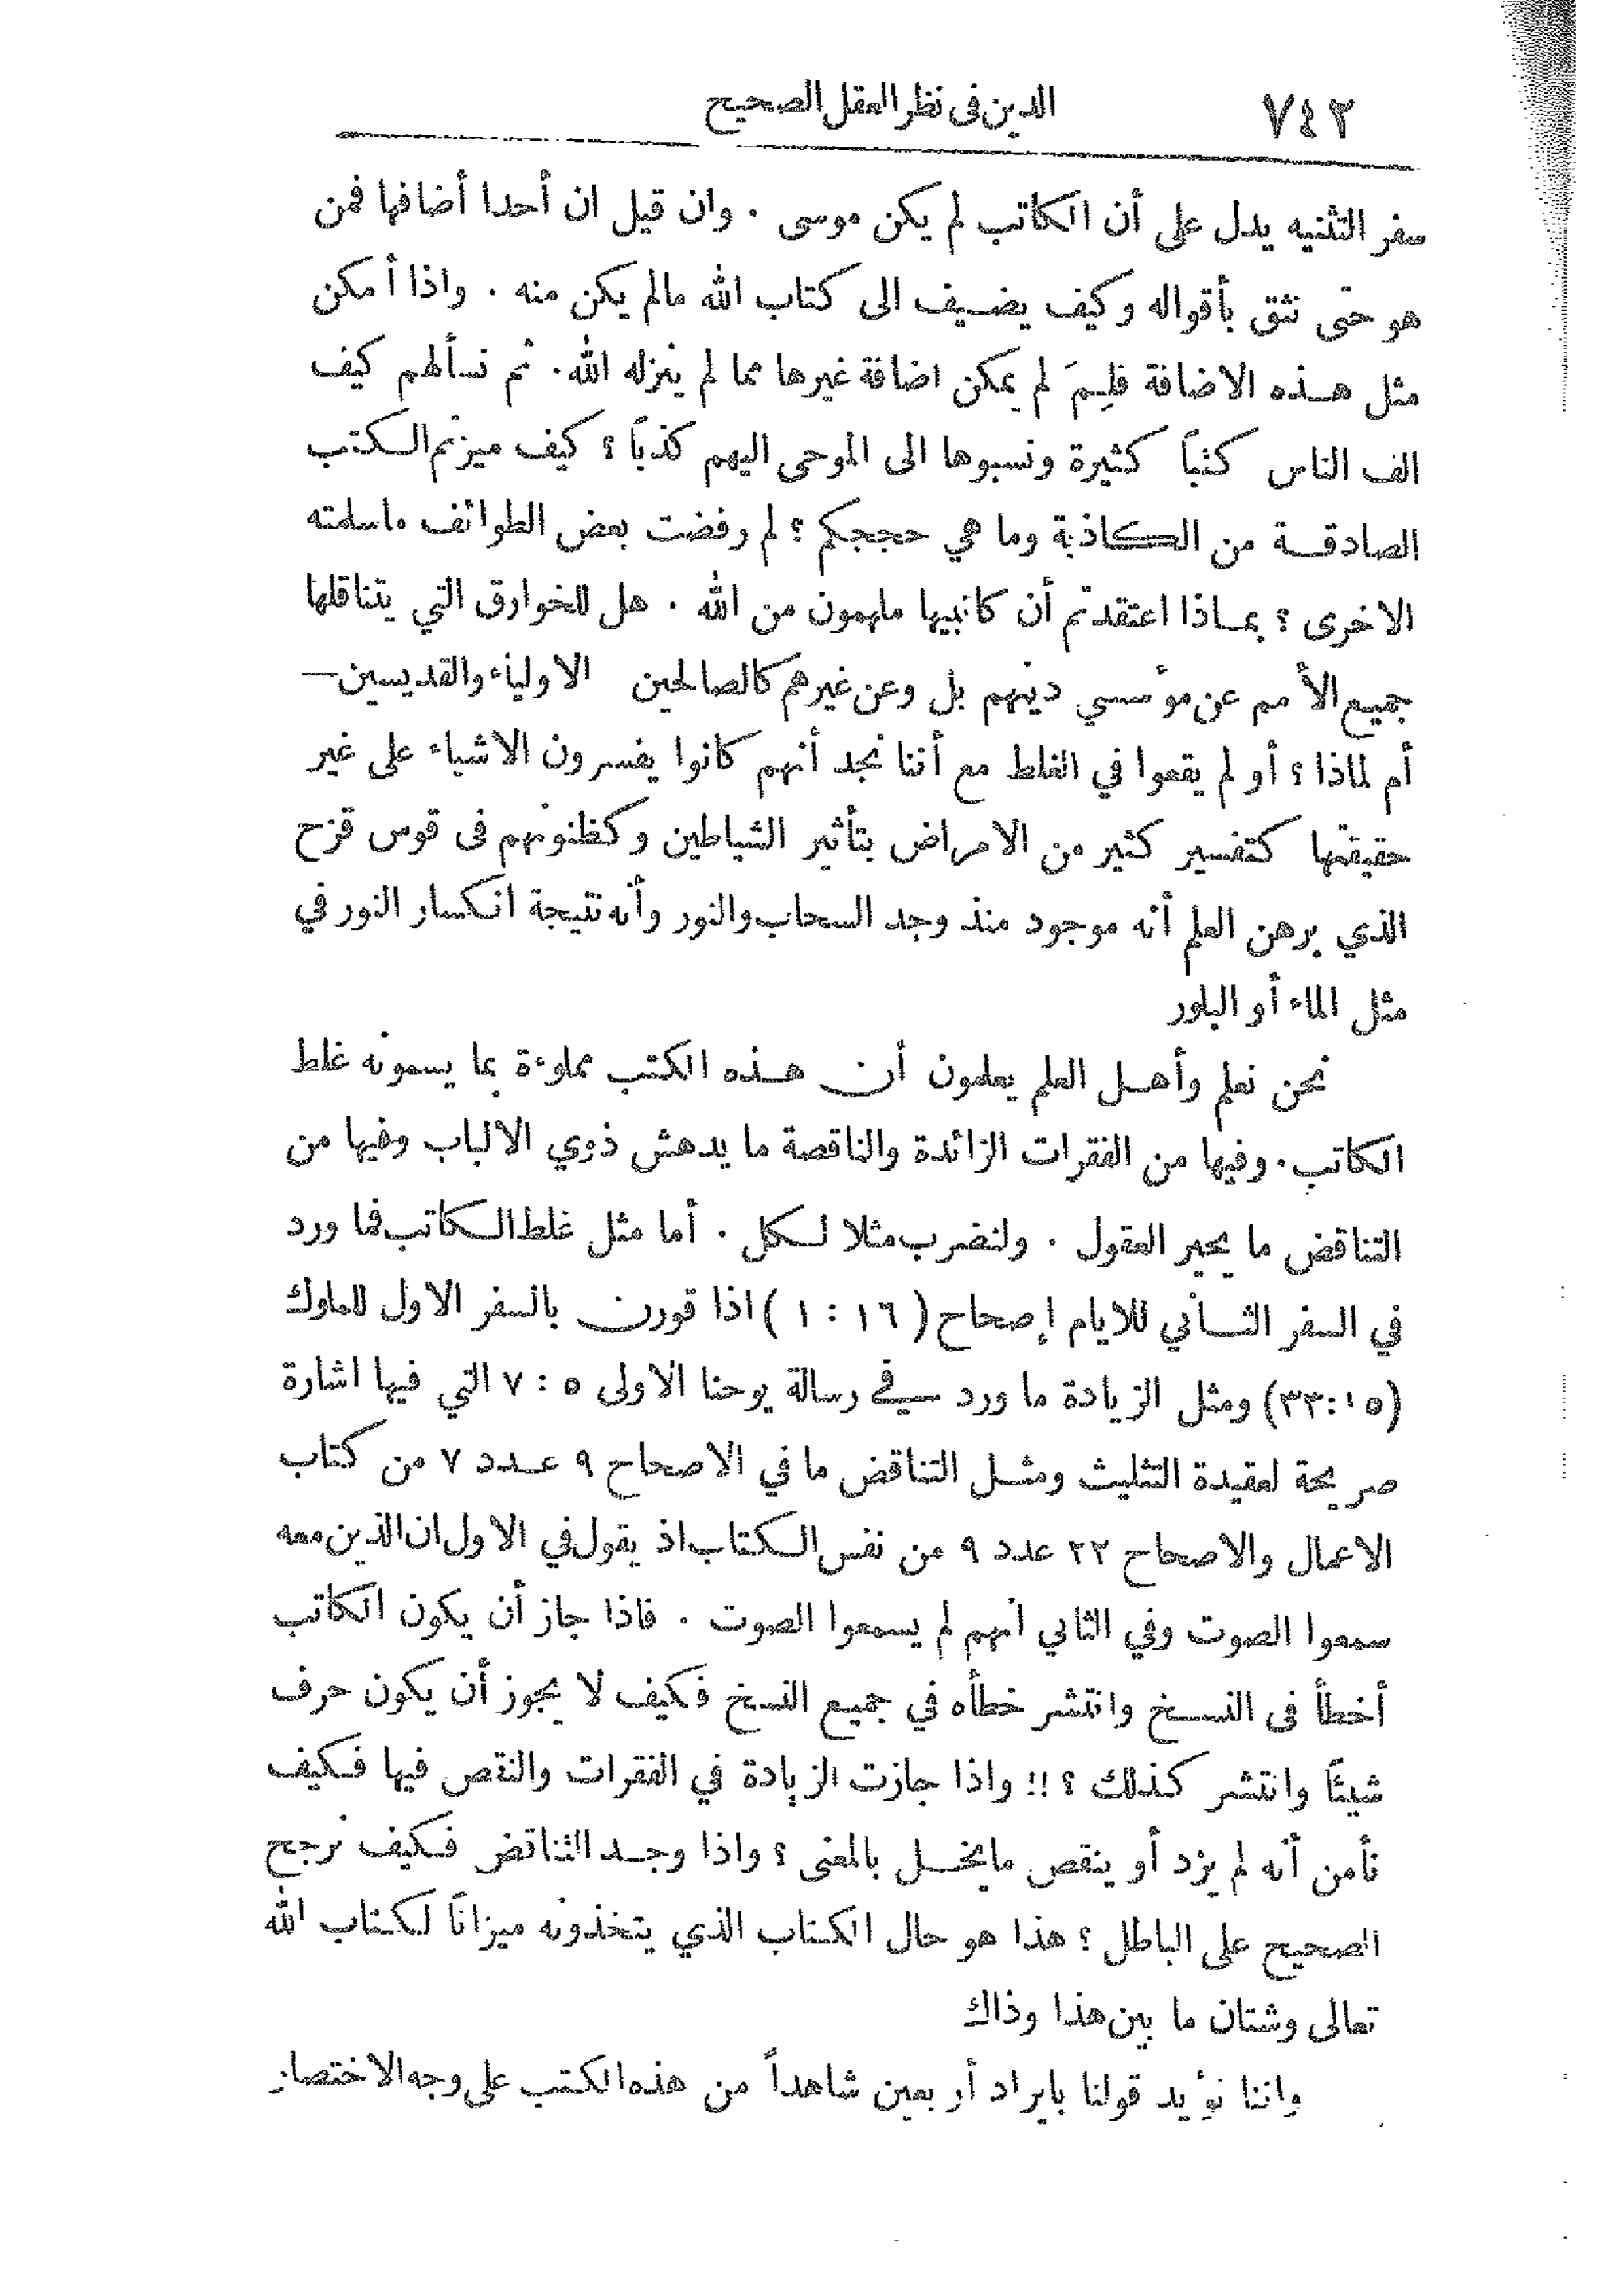 ٧٤٢
الدين في نظر العقل الصحيح
سفر التثنيه يدل على أن الكاتب لم يكن موسى . وان قيل ان أحدا أضافها فمن
هو حتى نثق بأقواله وكيف يضيف الى كتاب الله مالم يكن منه . واذا أمكن
مثل هذه الاضافة فلِمَ لم يمكن اضافة غيرها مما لم ينزله الله . ثم نسألهم كيف
الف الناس كتباً كثيرة ونسبوها الى الموحى اليهم كذباً ؟ كيف ميزتم الكتب
الصادقة من الكاذبة وما هي حججكم ؟ لم رفضت بعض الطوائف ماسلمته
الاخرى ؟ بماذا اعتقدتم أن كاتبيها ملهمون من الله . هل للخوارق التي يتناقلها
جميع الأمم عن مؤسسي دينهم بل وعن غيرهم كالصالحين الاولياء والقديسين —
أم لماذا ؟ أو لم يقعوا في الغلط مع أننا نجد أنهم كانوا يفسرون الاشياء على غير
حقيقتها كتفسير كثير من الامراض بتأثير الشياطين وكظنونهم في قوس قزح
الذي برهن العلم أنه موجود منذ وجد السحاب والنور وأنه نتيجة انكسار النور في
مثل الماء أو البلور
نحن نعلم وأهل العلم يعلمون أن هذه الكتب مملوءة بما يسمونه غلط
الكاتب . وفيها من الفقرات الزائدة والناقصة ما يدهش ذوي الالباب وفيها من
التناقض ما يحير العقول . ولنضرب مثلا لكل . أما مثل غلط الكاتب فما ورد
في السفر الثاني للايام إصحاح ( ١٦ : ١ ) اذا قورن بالسفر الاول للملوك
(١٥:٣٣) ومثل الزيادة ما ورد في رسالة يوحنا الاولى ٥ : ٧ التي فيها اشارة
صريحة لعقيدة التثليث ومثل التناقض ما في الاصحاح ٩ عدد ٧ من كتاب
الاعمال والاصحاح ٢٢ عدد ٩ من نفس الكتاب اذ يقول في الاول ان الذين معه
سمعوا الصوت وفي الثاني انهم لم يسمعوا الصوت . فاذا جاز أن يكون الكاتب
أخطأ في النسخ وانتشر خطأه في جميع النسخ فكيف لا يجوز أن يكون حرف
شيئاً وانتشر كذلك ؟ !! واذا جازت الزيادة في الفقرات والنقص فيها فكيف
نأمن أنه لم يزد أو ينقص مايخل بالمعنى ؟ واذا وجد التناقض فكيف نرجح
الصحيح على الباطل ؟ هذا هو حال الكتاب الذي يتخذونه ميزاناً لكتاب الله
تعالى وشتان ما بين هذا وذاك
واننا نؤيد قولنا بايراد أربعين شاهداً من هذه الكتب على وجه الاختصار